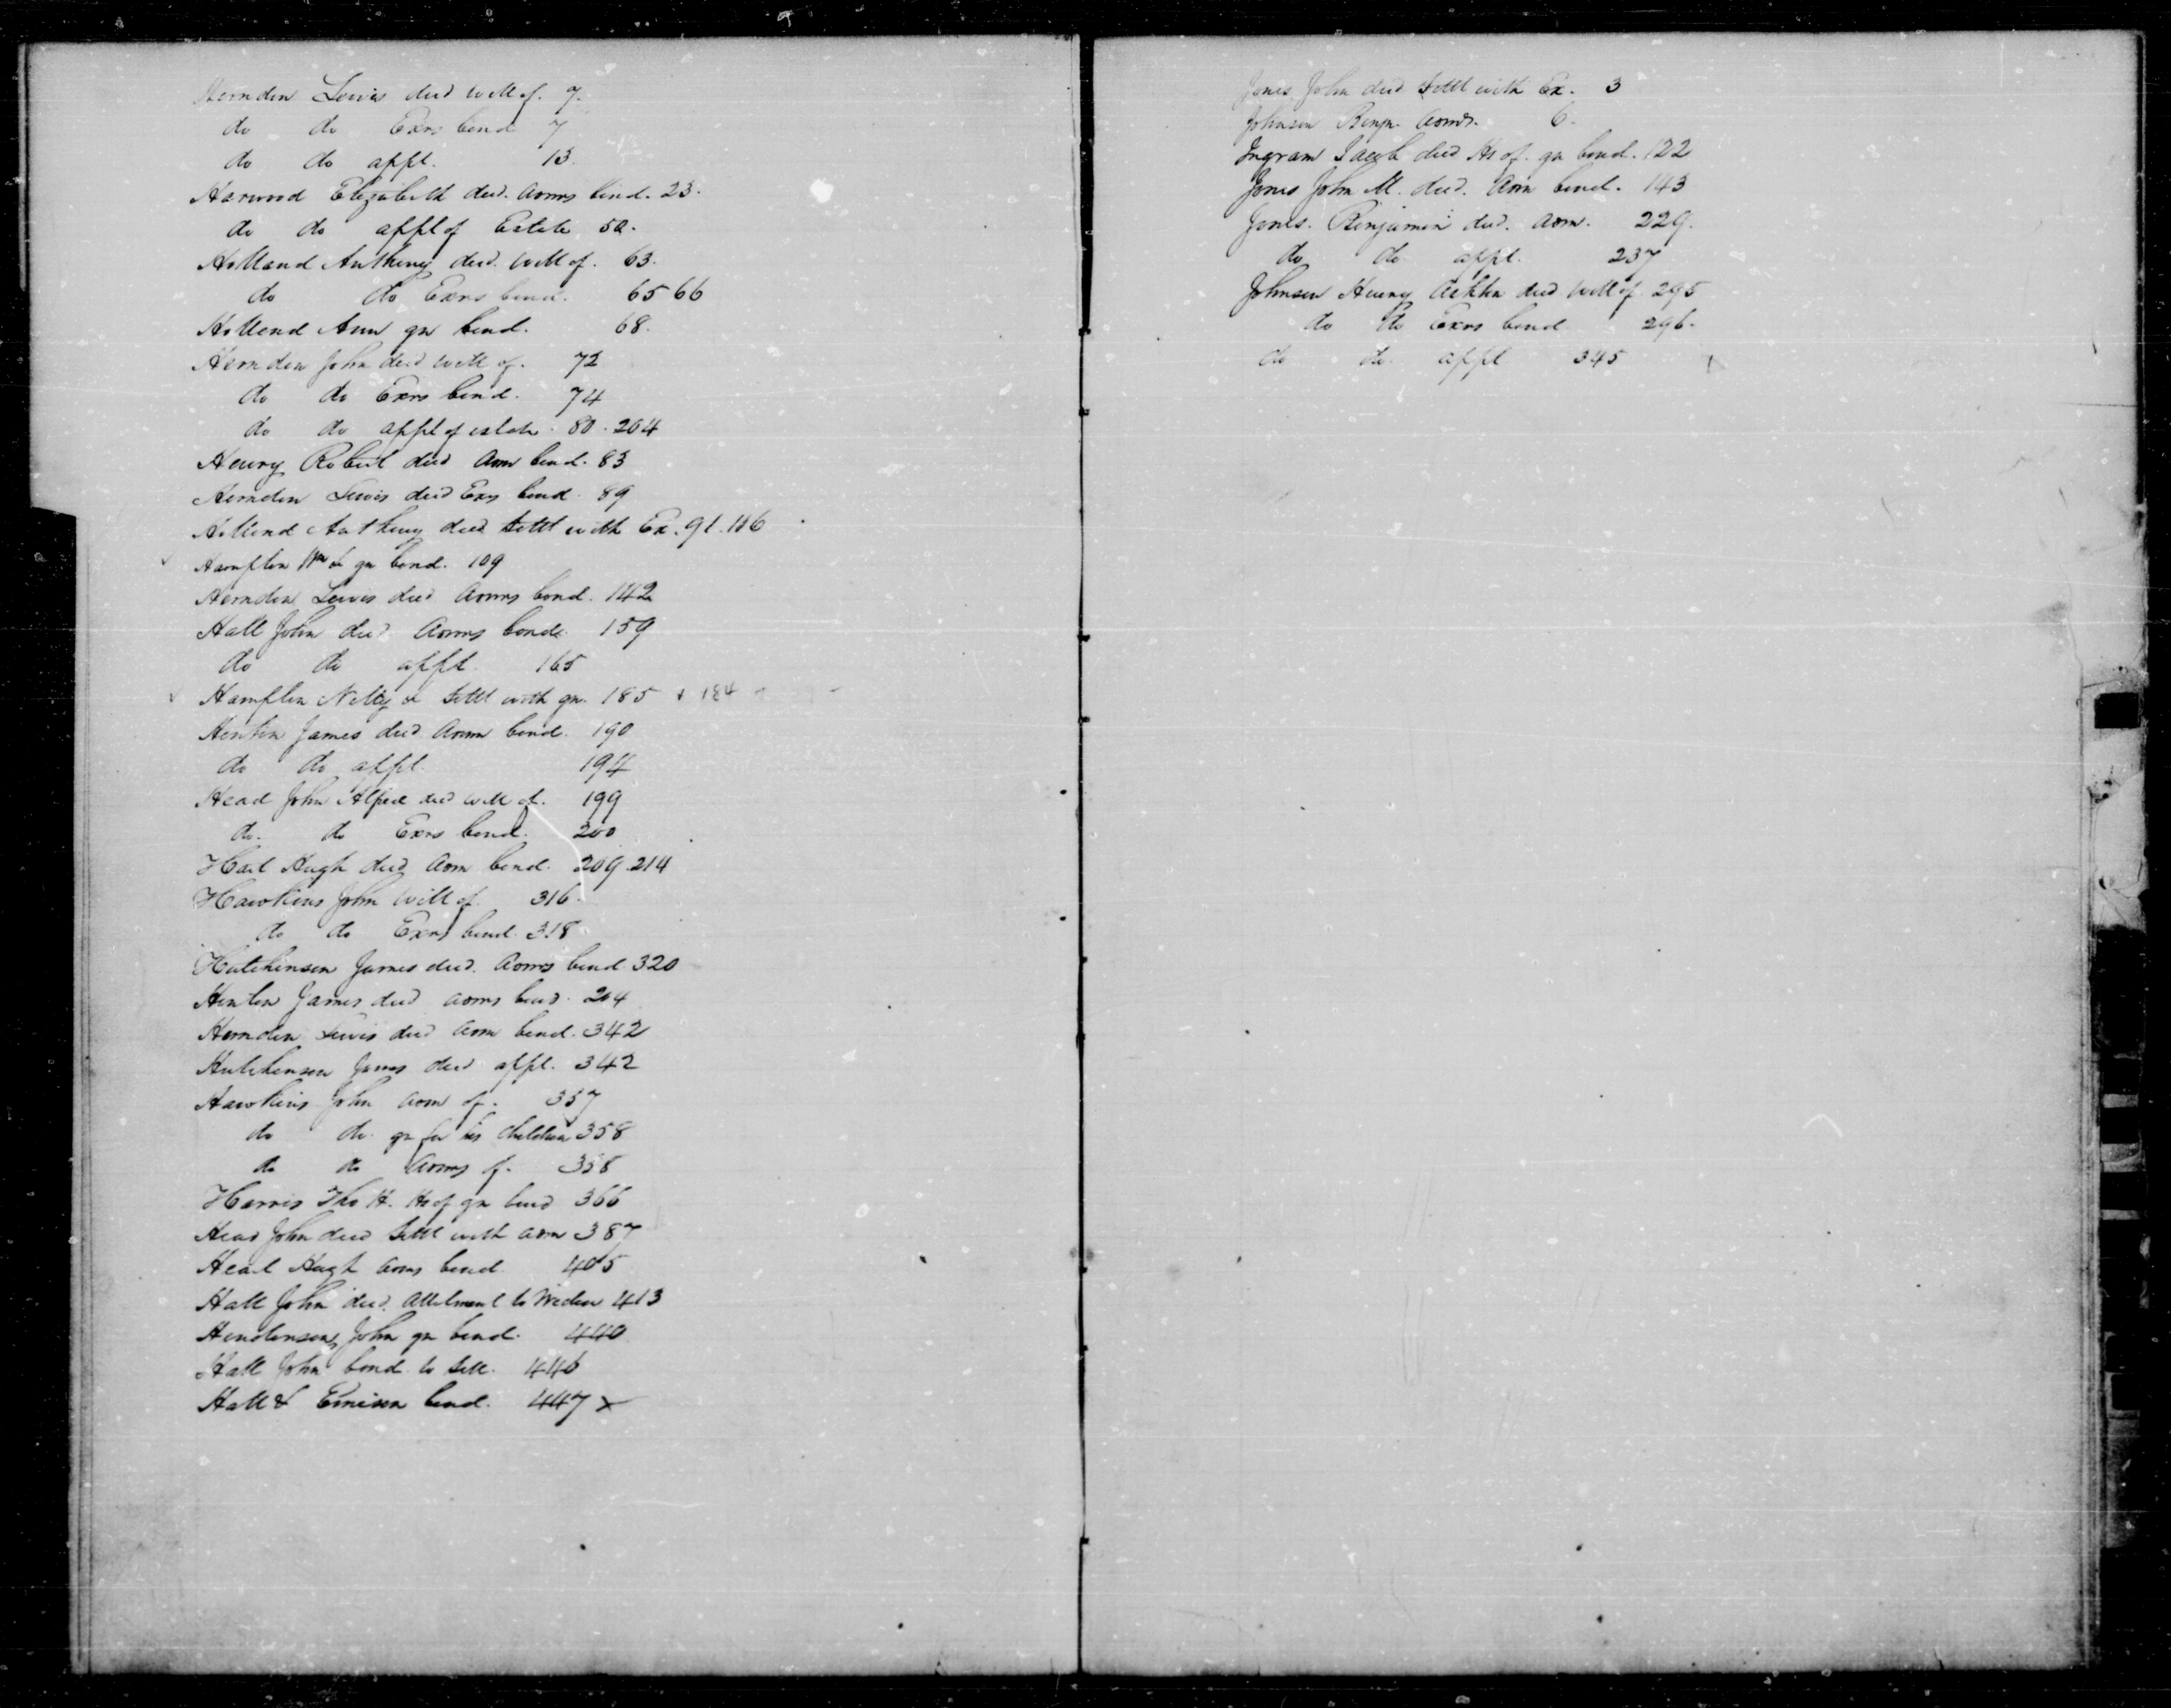 Herndon Lewis decd will of. 7.
do do Exrs bond 7
do do appt. 13.
Harwood Elizabeth decd. Admrs bond. 23.
do do appt of Estate 50.
Holland Anthony decd. will of. 63.
do do Exrs bond. 65 66
Holland Ann gn bond. 68.
Herndon John decd will of. 72
do do Exrs bond. 74
do do appt of estate. 80. 204
Henry Robert decd Adm bond. 83
Herndon Lewis decd Exrs bond. 89
Holland Anthony decd settt with Ex. 91. 106
Hampton Wm & gn bond. 109
Herndon Lewis decd Admrs bond. 142
Hall John decd. Admrs bond. 159
do do appt. 165
Hampton Nelly & settt with gn. 185 & 184
Henton James decd Admr bond. 190
do do appt. 194
Head John Alfred decd will of. 199
do. do Exrs bond. 200
Hart Hugh decd Adm bond. 209. 214
Hawkins John will of. 316.
do do Exrs bond. 318
Hutchinson James decd. Admrs bond 320
Henton James decd Admrs bond. 204
Herndon Lewis decd Adm bond. 342
Hutchinson James decd appt. 342
Hawkins John Adm of. 357
do do. gn for his children 358
do do Admrs of. 358
Harris Tho H. Hs of gn bond 366
Head John decd settt with adm 387
Hart Hugh Adms bond. 405
Hall John decd. Allotment to Widow 413
Henderson John gn bond. 440
Hall John bond to sell. 446
Hall & Emison bond. 447 x
Jones John decd settt with Ex. 3
Johnson Benjn. Admr. 6.
Ingram Jacob decd Hs of. gn bond. 122
Jones John M. decd. Adm bond. 143
Jones. Benjamin decd. Adm. 229.
do do appt. 237
Johnson Henry decd will of 295
do do Exrs bond 296.
do do. appt 345